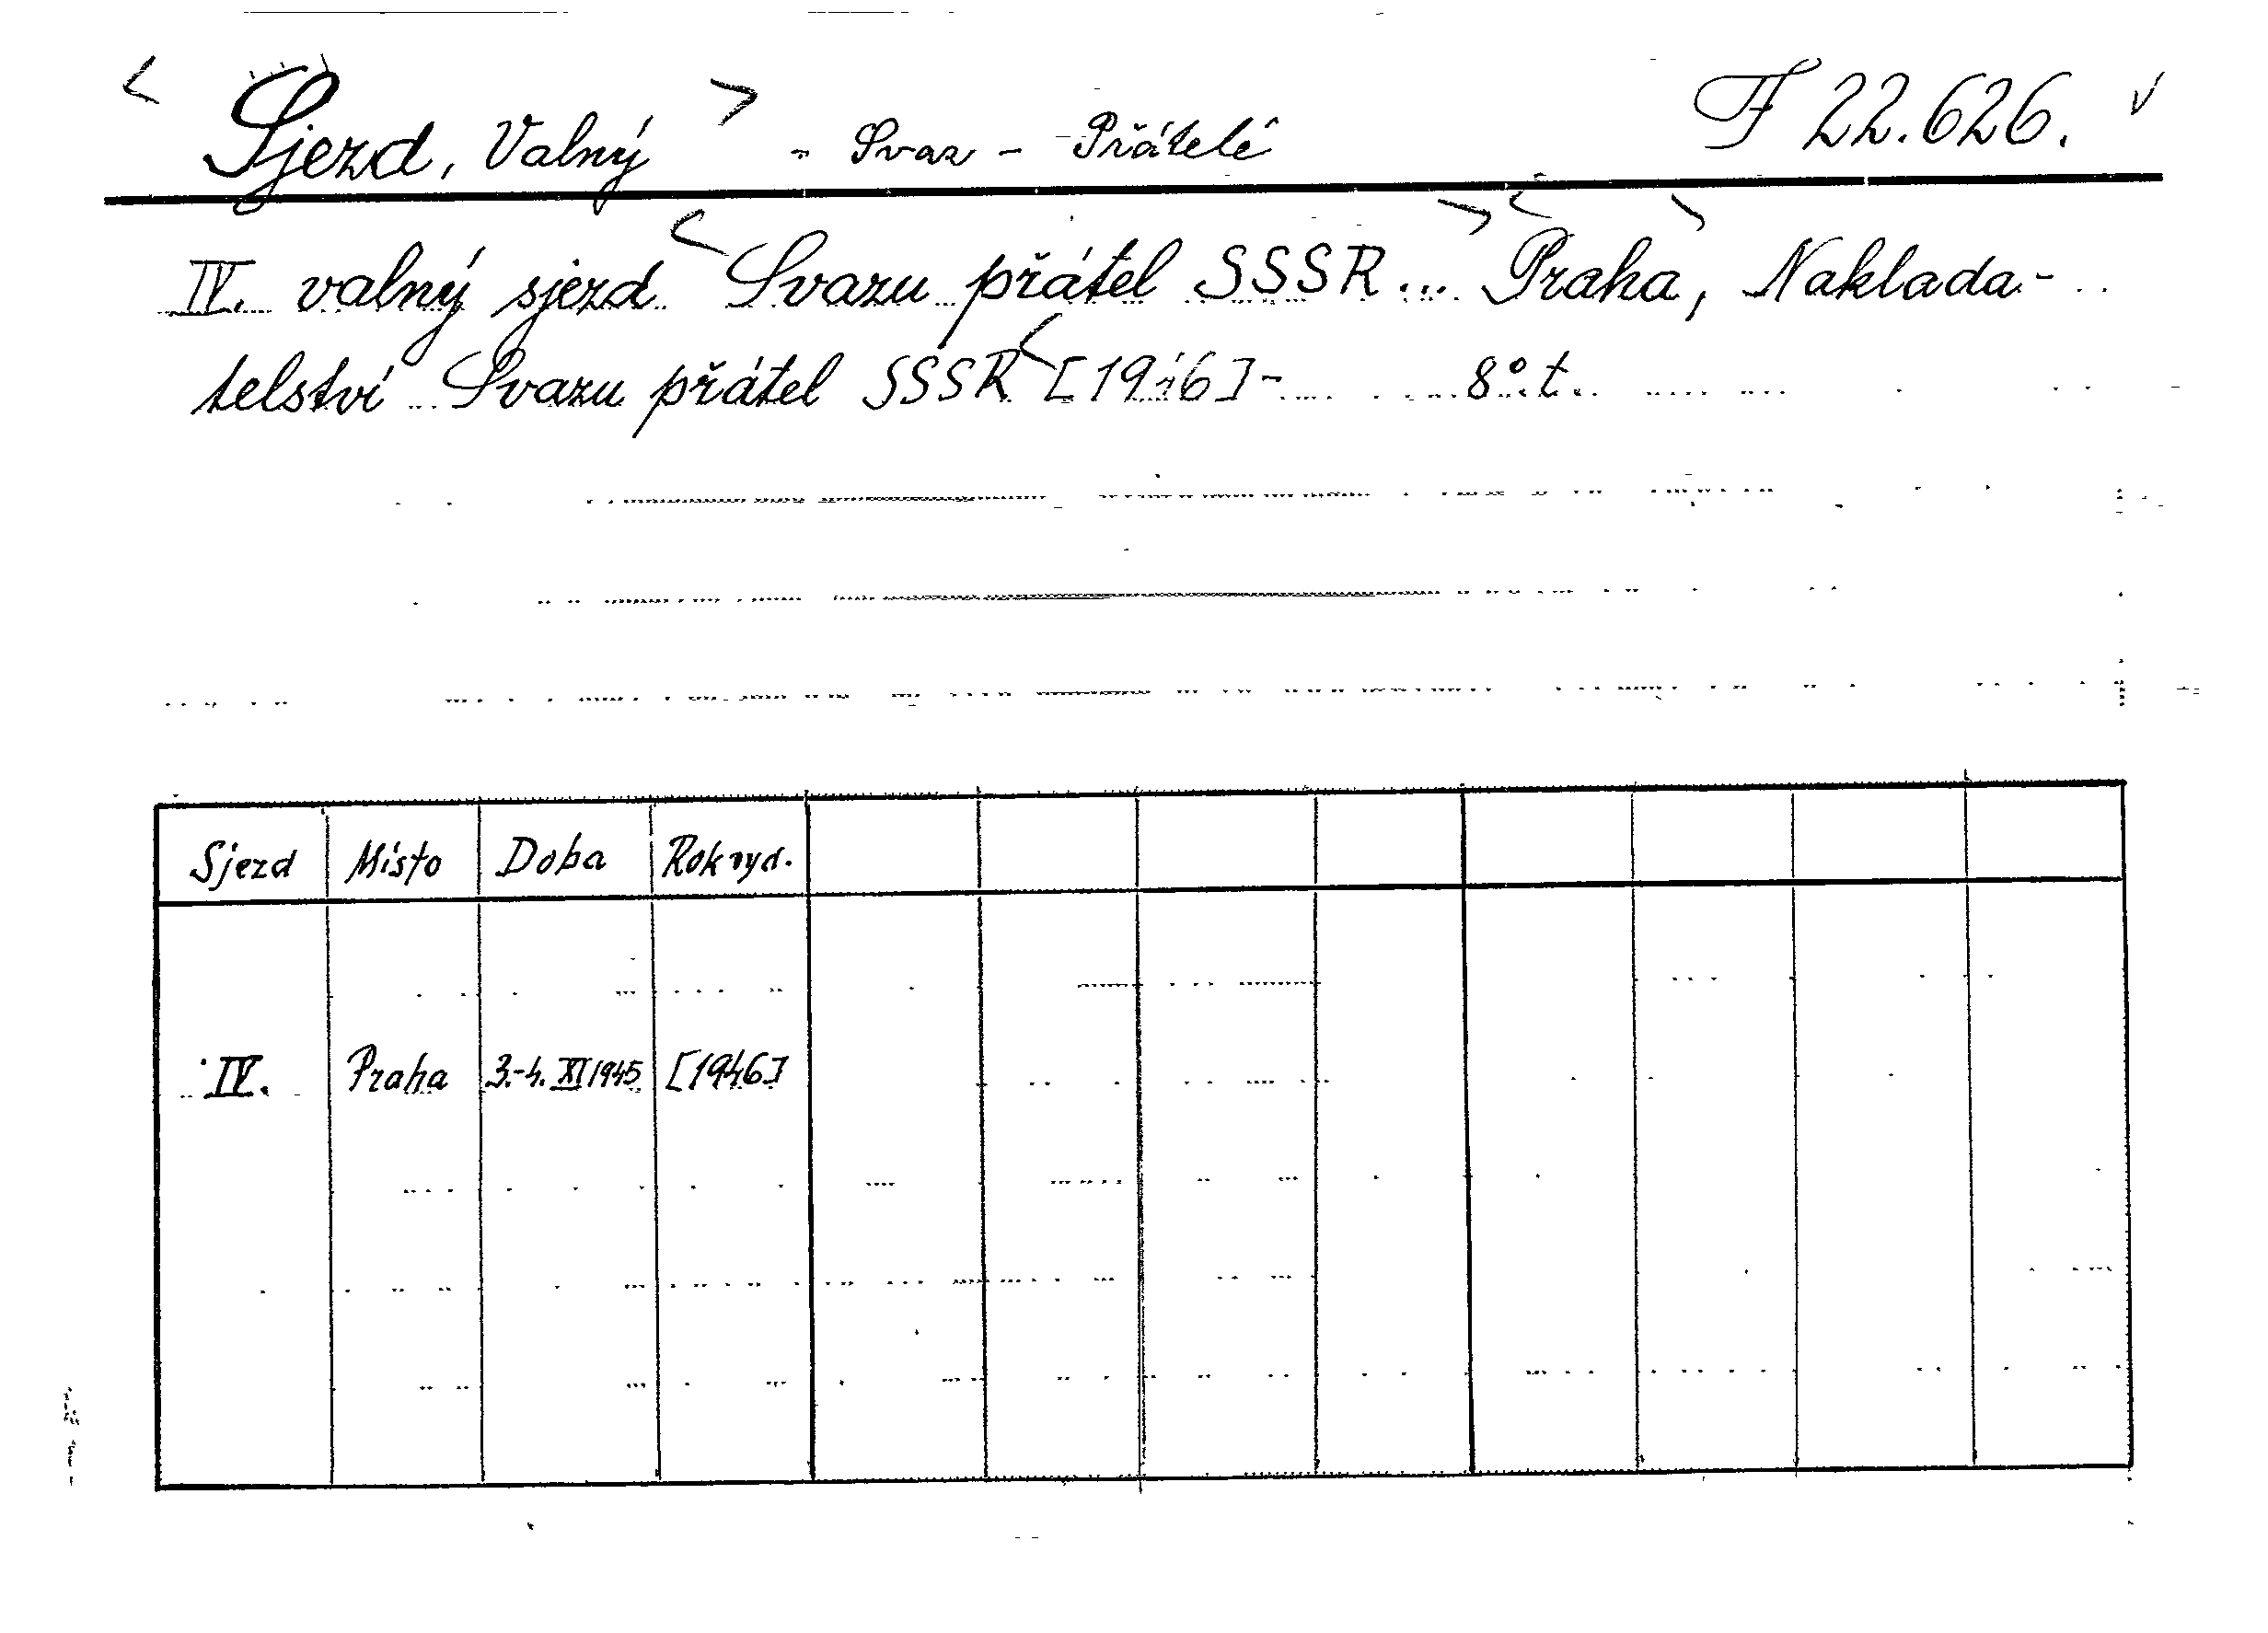 < Sjezd, Valný > - Svaz - Přátelé F 22.626. v
IV. valný sjezd < Svazu přátel SSSR... > < Praha, > Naklada-
telství Svazu přátel SSSR < [1946]- 8° t.
Sjezd Místo Doba Rok vyd.
IV. Praha 3.-4. XI 1945 [1946]